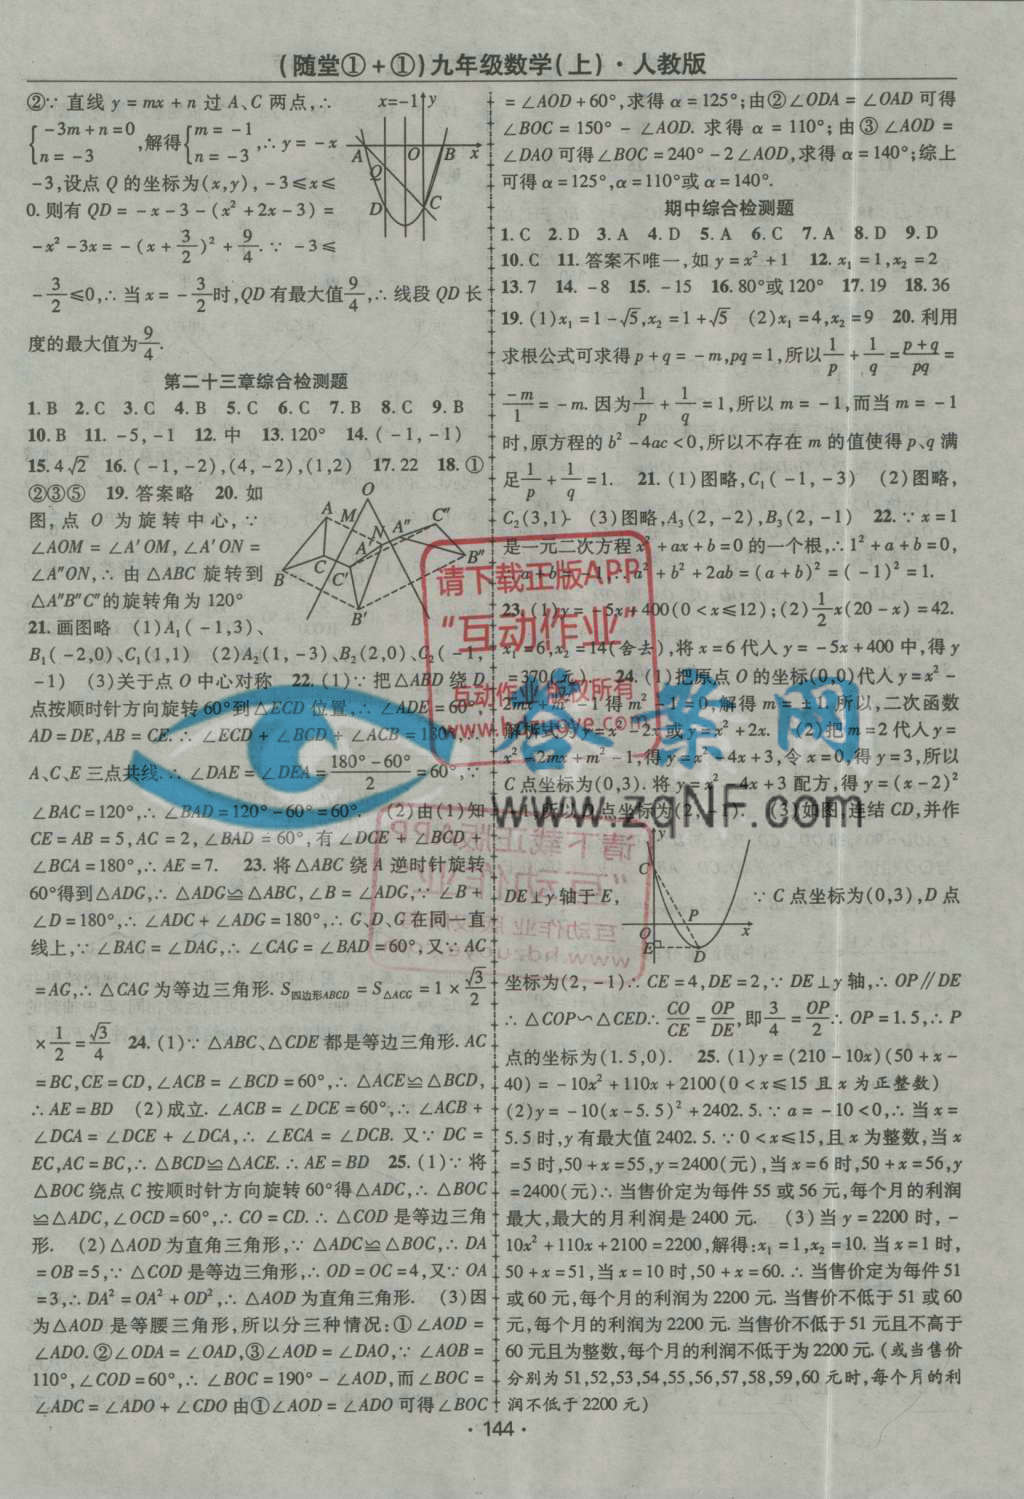 (随堂①+①)九年级数学(上)·人教版
②∵ 直线 y=mx+n 过 A、C 两点,∴
{-3m+n=0 n=-3 ,解得{m=-1 n=-3 ,∴y=-x
-3,设点 Q 的坐标为(x,y),-3≤x≤
0.则有 QD=-x-3-(x²+2x-3)=
-x²-3x=-(x+3/2)²+9/4.∵ -3≤
-3/2≤0,∴当 x=-3/2时,QD 有最大值9/4,∴线段 QD 长
度的最大值为9/4.
x=-1 y A O B x Q D C
第二十三章综合检测题
1.B 2.C 3.C 4.B 5.C 6.C 7.B 8.C 9.B
10.B 11.-5,-1 12.中 13.120° 14.(-1,-1)
15.4√2 16.(-1,-2),(4,-2),(1,2) 17.22 18.①
②③⑤ 19.答案略 20.如
图,点 O 为旋转中心,∵
∠AOM=∠A′OM,∠A′ON=
∠A″ON,∴ 由△ABC 旋转到
△A″B″C″的旋转角为 120°
O A M N A″ C″ A′ B C C′ B″ B′
21.画图略 (1)A₁(-1,3)、
B₁(-2,0)、C₁(1,1) (2)A₂(1,-3)、B₂(2,0)、C₂(-1,
-1) (3)关于点 O 中心对称 22.(1)∵ 把△ABD 绕 D
点按顺时针方向旋转60°到△ECD 位置,∴∠ADE=60°,
AD=DE,AB=CE.∴∠ECD+∠BCD+∠ACB=180°,
A、C、E 三点共线.∴∠DAE=∠DEA=180°-60°/2=60°,∵
∠BAC=120°,∴∠BAD=120°-60°=60°. (2)由(1)知
CE=AB=5,AC=2,∠BAD=60°,有∠DCE+∠BCD+
∠BCA=180°,∴AE=7. 23.将△ABC 绕 A 逆时针旋转
60°得到△ADG,∴△ADG≌△ABC,∠B=∠ADG,∵∠B+
∠D=180°,∴∠ADC+∠ADG=180°,∴G、D、G在同一直
线上,∵∠BAC=∠DAG,∴∠CAG=∠BAD=60°,又∵AC
=AG,∴△CAG 为等边三角形.S四边形ABCD=S△ACG=1×√3/2
×1/2=√3/4 24.(1)∵△ABC、△CDE 都是等边三角形.AC
=BC,CE=CD,∠ACB=∠BCD=60°,∴△ACE≌△BCD,
∴AE=BD (2)成立.∠ACB=∠DCE=60°,∴∠ACB+
∠DCA=∠DCE+∠DCA,∴∠ECA=∠DCB.又∵DC=
EC,AC=BC,∴△BCD≌△ACE.∴AE=BD 25.(1)∵将
△BOC 绕点 C 按顺时针方向旋转60°得△ADC,∴△BOC
≌△ADC,∠OCD=60°,∴CO=CD.∴△COD 是等边三角
形. (2)△AOD 为直角三角形,∵△ADC≌△BOC,∴DA
=OB=5,∵△COD 是等边三角形,∴OD=OC=4,又∵OA
=3,∴DA²=OA²+OD²,∴△AOD 为直角三角形. (3)因
为△AOD 是等腰三角形,所以分三种情况:①∠AOD=
∠ADO.②∠ODA=∠OAD,③∠AOD=∠DAO,∵∠AOB=
110°,∠COD=60°,∴∠BOC=190°-∠AOD,而∠BOC=
∠ADC=∠ADO+∠CDO 由①∠AOD=∠ADO 可得∠BOC
=∠AOD+60°,求得 α=125°;由②∠ODA=∠OAD 可得
∠BOC=150°-∠AOD.求得 α=110°;由③∠AOD=
∠DAO 可得∠BOC=240°-2∠AOD,求得 α=140°;综上
可得 α=125°,α=110°或 α=140°.
期中综合检测题
1.C 2.D 3.A 4.D 5.A 6.C 7.A 8.D 9.D
10.C 11.答案不唯一,如 y=x²+1 12.x₁=1,x₂=2
13.7 14.-8 15.-15 16.80°或 120° 17.19 18.36
19.(1)x₁=1-√5,x₂=1+√5 (2)x₁=4,x₂=9 20.利用
求根公式可求得 p+q=-m,pq=1,所以1/p+1/q=p+q/pq=
-m/1=-m.因为1/p+1/q=1,所以 m=-1,而当 m=-1
时,原方程的 b²-4ac<0,所以不存在 m 的值使得 p、q 满
足1/p+1/q=1. 21.(1)图略,C₁(-1,-3) (2)图略,
C₂(3,1) (3)图略,A₃(2,-2),B₃(2,-1) 22.∵x=1
是一元二次方程x²+ax+b=0的一个根,∴1²+a+b=0,
a+b=-1,∴a²+b²+2ab=(a+b)²=(-1)²=1.
23.(1)y=-5x+400(0<x≤12);(2)1/2x(20-x)=42.
x₁=6,x₂=14(舍去),将 x=6 代入 y=-5x+400 中,得 y
=370(元) 24.(1)把原点 O 的坐标(0,0)代入 y=x²-
2mx+m²-1 得 m²-1=0,解得 m=±1.所以,二次函数
解析式为 y=x²-2x 或 y=x²+2x. (2)把 m=2 代入 y=
x²-2mx+m²-1,得 y=x²-4x+3,令 x=0,得 y=3,所以
C 点坐标为(0,3).将 y=x²-4x+3 配方,得 y=(x-2)²
-1.所以 D 点坐标为(2,-1). (3)如图,连结 CD,并作
DE⊥y 轴于 E, ∵C 点坐标为(0,3),D 点
y C P O x E D
坐标为(2,-1)∴CE=4,DE=2,∵DE⊥y 轴,∴OP∥DE
∴△COP∽△CED∴CO/CE=OP/DE,即3/4=OP/2∴OP=1.5,∴P
点的坐标为(1.5,0). 25.(1)y=(210-10x)(50+x-
40)=-10x²+110x+2100(0<x≤15 且 x 为正整数)
(2)y=-10(x-5.5)²+2402.5.∵a=-10<0,∴当 x=
5.5 时,y 有最大值 2402.5.∵0<x≤15,且 x 为整数,当 x
=5 时,50+x=55,y=2400(元),当 x=6 时,50+x=56,y
=2400(元)∴当售价定为每件 55 或 56 元,每个月的利润
最大,最大的月利润是 2400 元. (3)当 y=2200 时,-
10x²+110x+2100=2200,解得:x₁=1,x₂=10.当 x=1时,
50+x=51,当 x=10 时,50+x=60.∴当售价定为每件 51
或 60 元,每个月的利润为 2200 元.当售价不低于 51 或 60
元,每个月的利润为 2200 元.当售价不低于 51 元且不高于
60 元且为整数,每个月的利润不低于 2200 元.(或当售价
分别为 51,52,53,54,55,56,57,58,59,60 元时,每个月的利
润不低于 2200 元)
·144·
请下载正版APP
“互动作业”
互动作业 版权所有
www.hdzuoye.com
答案网
www.zqNF.com